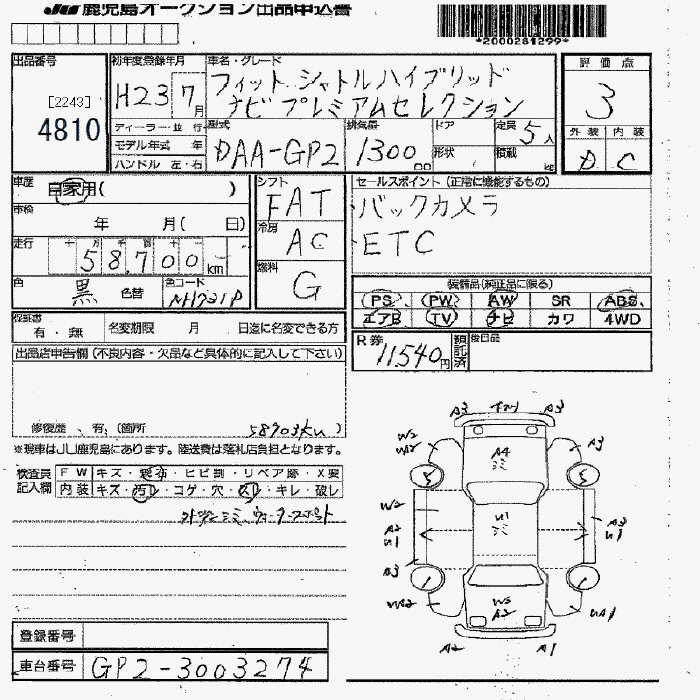 JU 鹿児島オークション出品申込書
*2000281299*
出品番号
[2243]
4810
初年度登録年月
H23 7月
車名・グレード
フィットシャトルハイブリッド
ナビプレミアムセレクション
評価点
3
外装 内装
D C
ディーラー・並行
モデル年式 年
ハンドル 左・右
型式
DAA-GP2
排気量
1300 cc
ドア
形状
定員 5人
積載 kg
車歴 自家用( )
車検 年 月( 日)
走行 十 万 千 百 十 一
58,700 km
色 黒 色替
色コード NH731P
シフト FAT
冷房 AC
燃料 G
セールスポイント(正常に機能するもの)
バックカメラ
ETC
装備品(純正品に限る)
PS PW AW SR ABS
エアB TV ナビ カワ 4WD
保証書 有・無
名変期限 月 日迄に名変できる方
R券 11,540円
預託済
後日品
出品店申告欄(不良内容・欠品など具体的に記入して下さい)
修復歴 有 (箇所 58703km )
※現車はJU鹿児島にあります。陸送費は落札店負担となります。
検査員記入欄
FW キズ・・ヒビ割・リペア跡・X要
内装 キズ・汚レ・コゲ・穴・スレ・キレ・破レ
A3 A3
W2 A3
A4
ミミ
S S
W2
U1
ミミ
A2 A3
U1 U1
A3
W2
A2
UA1
A2 A1
登録番号
車台番号 GP2-3003274